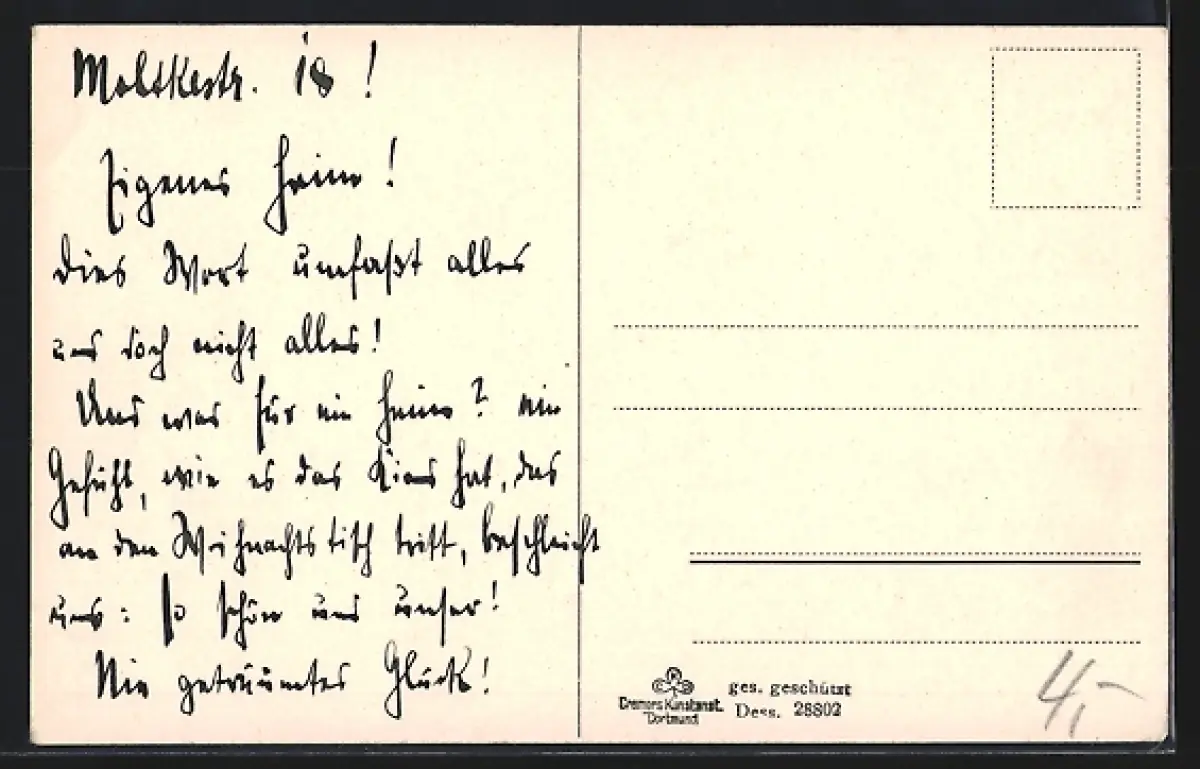 Moltkestr. 18!
Eigenes Heim!
Dies Wort umfaßt alles
und doch nicht alles!
Und was für ein Heim? ein
Gefühl, wie es das Kind hat, das
an den Weihnachtstisch tritt, beschleicht
uns: so schön und unser!
Nie geträumtes Glück!
Cremers Kunstanst.
Dortmund
ges. geschützt
Dess. 28802
4,-